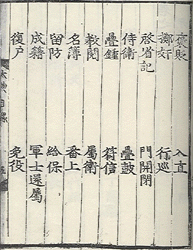 褒貶 入直
擲奸 行巡
啓省記 門開閉
侍衛 疊鼓
疊鍾 符信
敎閱 屬衛
名簿 番上
留防 給保
成籍 軍士還屬
復戶 免役